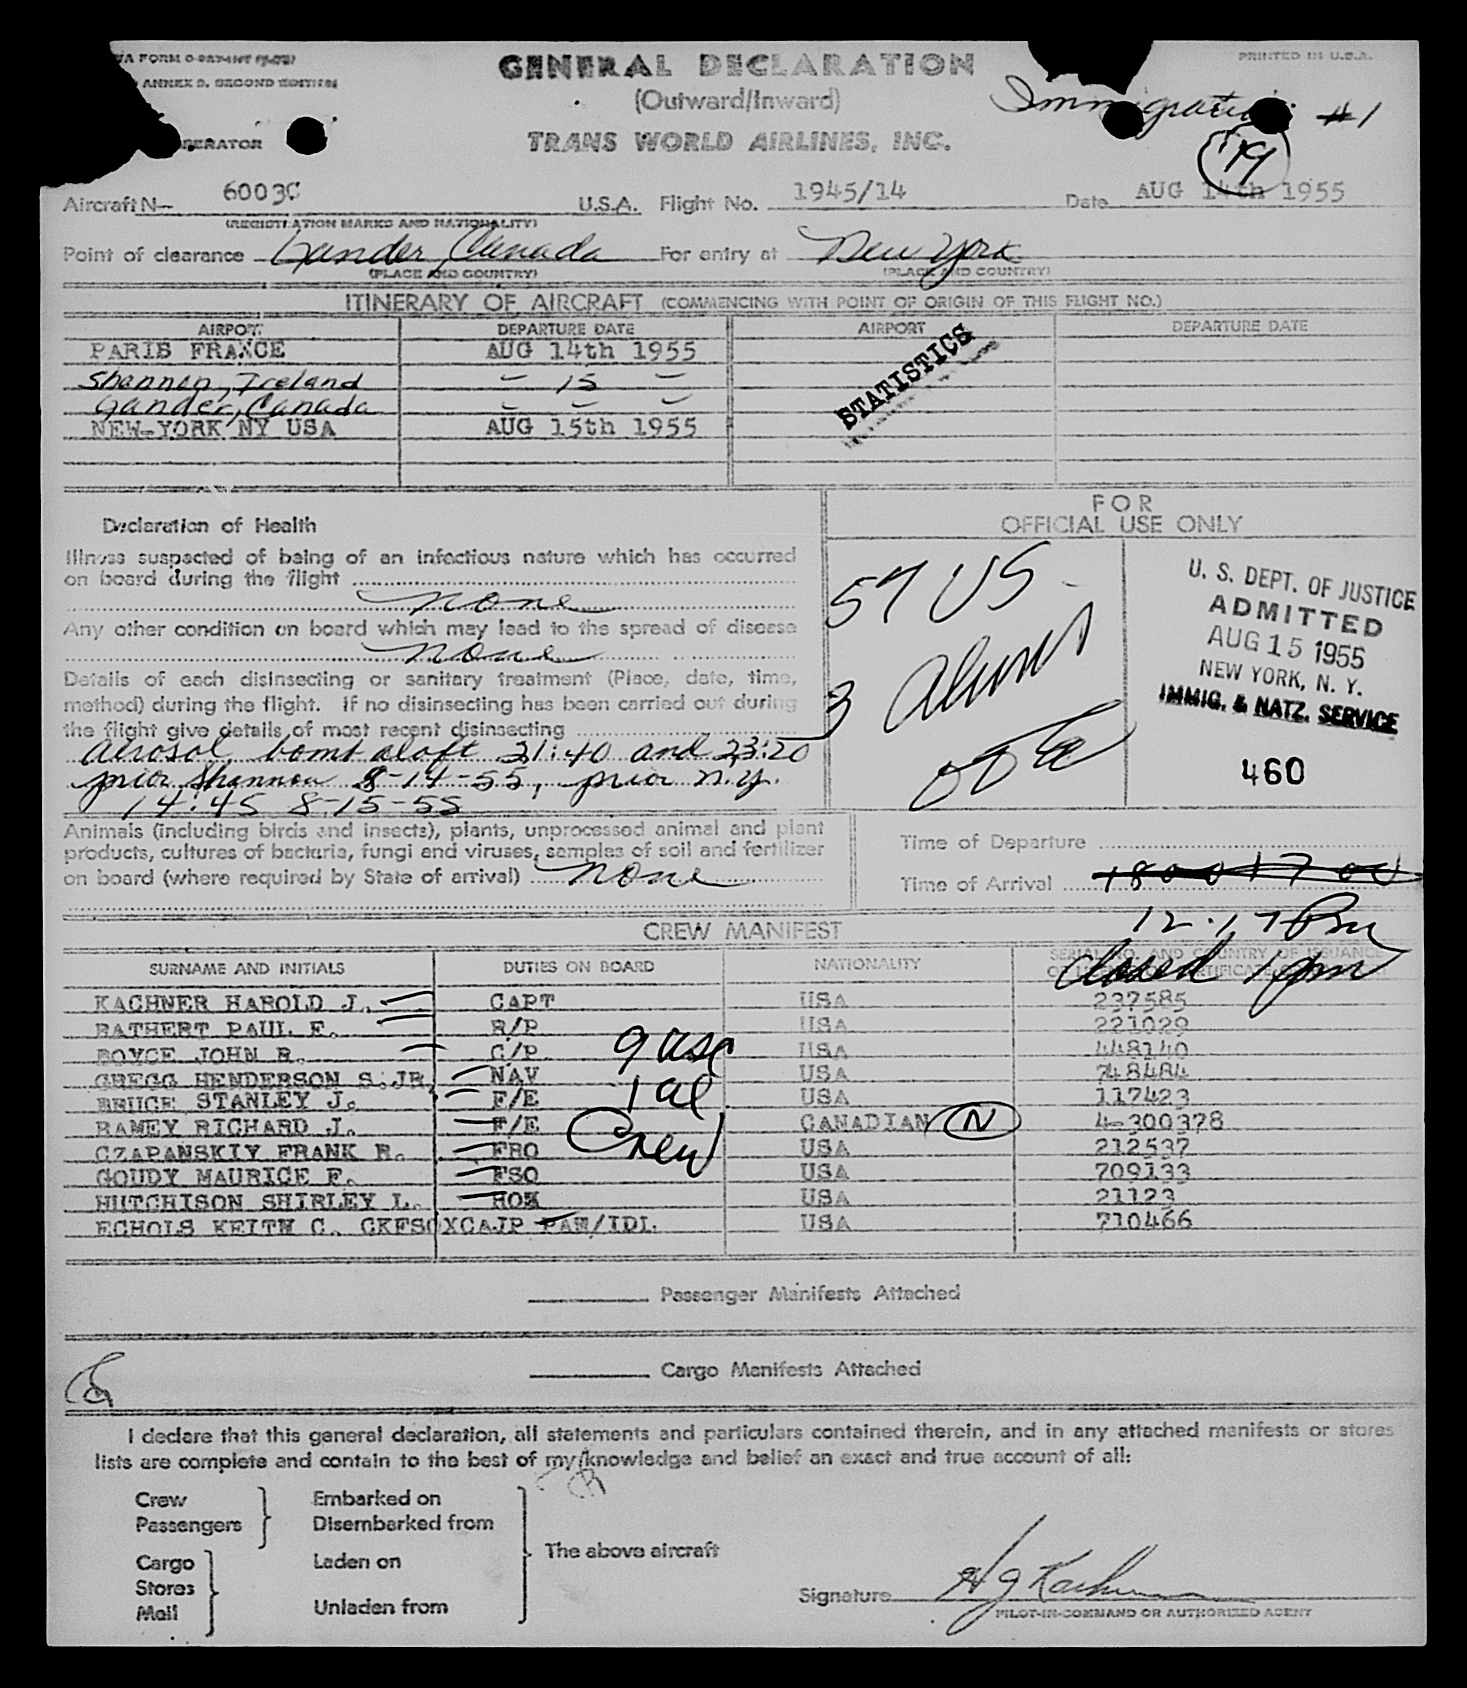 GENERAL DECLARATION
PRINTED IN U.S.A.
ANNEX 9, SECOND EDITION
(Outward/Inward)
Immigration #1
OPERATOR
TRANS WORLD AIRLINES, INC.
19
Aircraft N— 6003C U.S.A. Flight No. 1945/14 Date AUG 14th 1955
(REGISTRATION MARKS AND NATIONALITY)
Point of clearance Gander, Canada For entry at New York
(PLACE AND COUNTRY) (PLACE AND COUNTRY)
ITINERARY OF AIRCRAFT (COMMENCING WITH POINT OF ORIGIN OF THIS FLIGHT NO.)
AIRPORT DEPARTURE DATE AIRPORT DEPARTURE DATE
PARIS FRANCE AUG 14th 1955
Shannon, Ireland — 15 —
Gander, Canada — — —
NEW-YORK NY USA AUG 15th 1955
STATISTICS
FOR
OFFICIAL USE ONLY
Declaration of Health
Illness suspected of being of an infectious nature which has occurred
on board during the flight
none
Any other condition on board which may lead to the spread of disease
none
Details of each disinsecting or sanitary treatment (Place, date, time,
method) during the flight. If no disinsecting has been carried out during
the flight give details of most recent disinsecting
aerosol bomb aloft 21:40 and 23:20
prior Shannon 8-14-55, prior N.Y.
14:45 8-15-55
57 US
3 Aliens
U. S. DEPT. OF JUSTICE
ADMITTED
AUG 15 1955
NEW YORK, N. Y.
IMMIG. & NATZ. SERVICE
460
Animals (including birds and insects), plants, unprocessed animal and plant
products, cultures of bacteria, fungi and viruses, samples of soil and fertilizer
on board (where required by State of arrival) none
Time of Departure
Time of Arrival 1800 1700
12:17 Pm
closed 1 pm
CREW MANIFEST
SURNAME AND INITIALS DUTIES ON BOARD NATIONALITY SERIAL NO. AND COUNTRY OF ISSUANCE
KACHNER HAROLD J. CAPT USA 237585
RATHERT PAUL E. R/P USA 221029
BOYCE JOHN R. C/P USA 448140
GREGG HENDERSON S.JR. NAV USA 748484
BRUCE STANLEY J. F/E USA 117423
RAMEY RICHARD J. F/E CANADIAN N 4-300378
CZAPANSKIY FRANK R. FRO USA 212537
GOUDY MAURICE F. FSO USA 709133
HUTCHISON SHIRLEY L. HOS USA 21123
ECHOLS KEITH C. CKFSO XCAJP PAW/IDL USA 710466
9 usa
1 al
Crew
Passenger Manifests Attached
Cargo Manifests Attached
I declare that this general declaration, all statements and particulars contained therein, and in any attached manifests or stores
lists are complete and contain to the best of my knowledge and belief an exact and true account of all:
Crew
Passengers
Embarked on
Disembarked from
Cargo
Stores
Mail
Laden on
Unladen from
The above aircraft
Signature H J Kachner
PILOT-IN-COMMAND OR AUTHORIZED AGENT